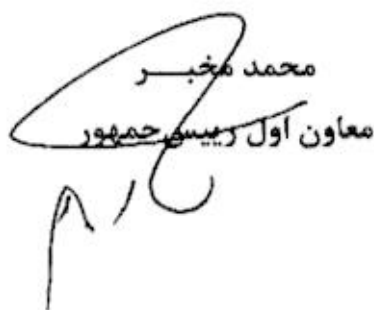 محمد مخبـــر
معاون اول رییس جمهور